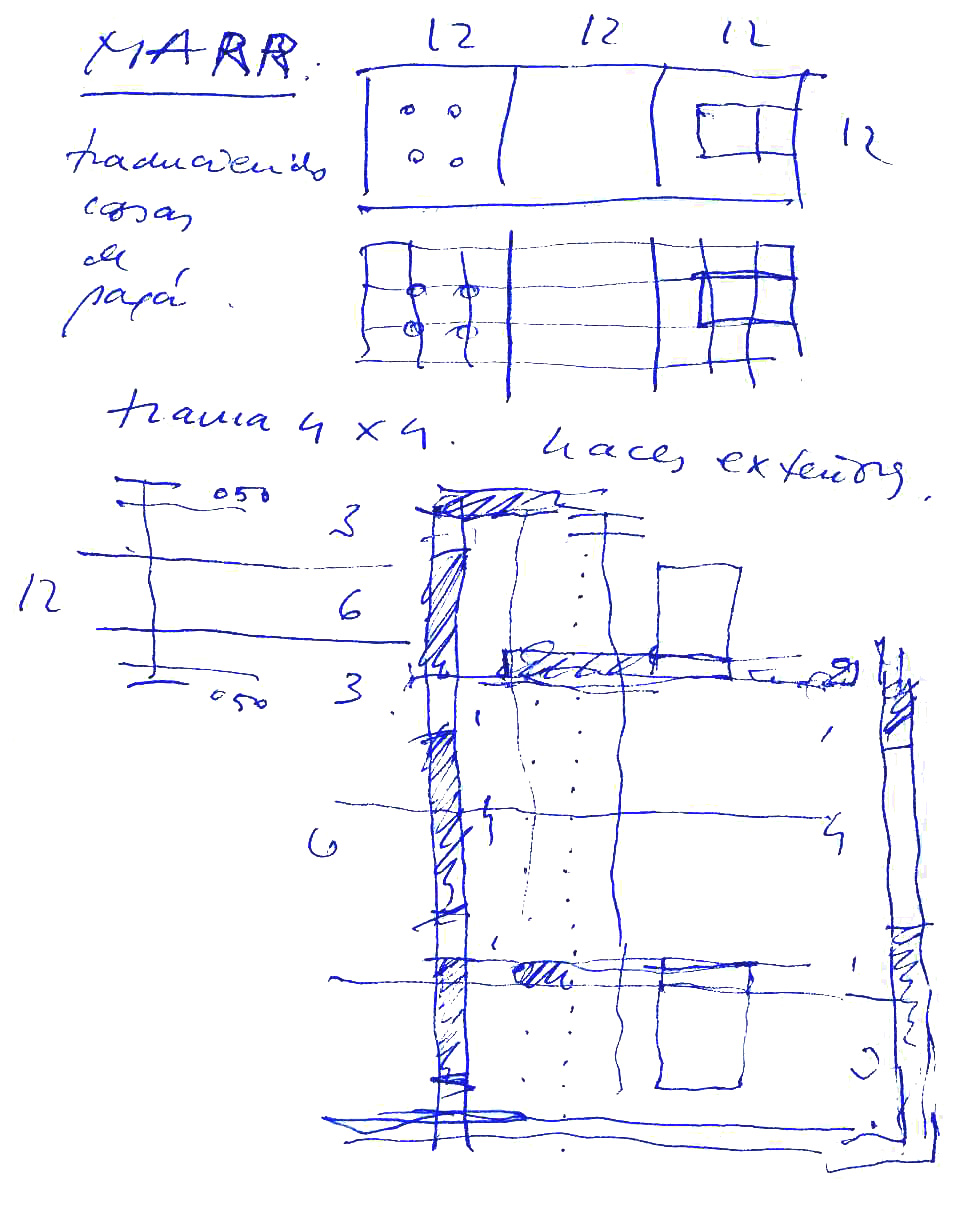 MARR.
12 12 12
12
traduciendo
cosas
de
papá.
trama 4 x 4.
haces exteriores.
050
3
12
6
3
050
1
1
6
4
4
1
1
3